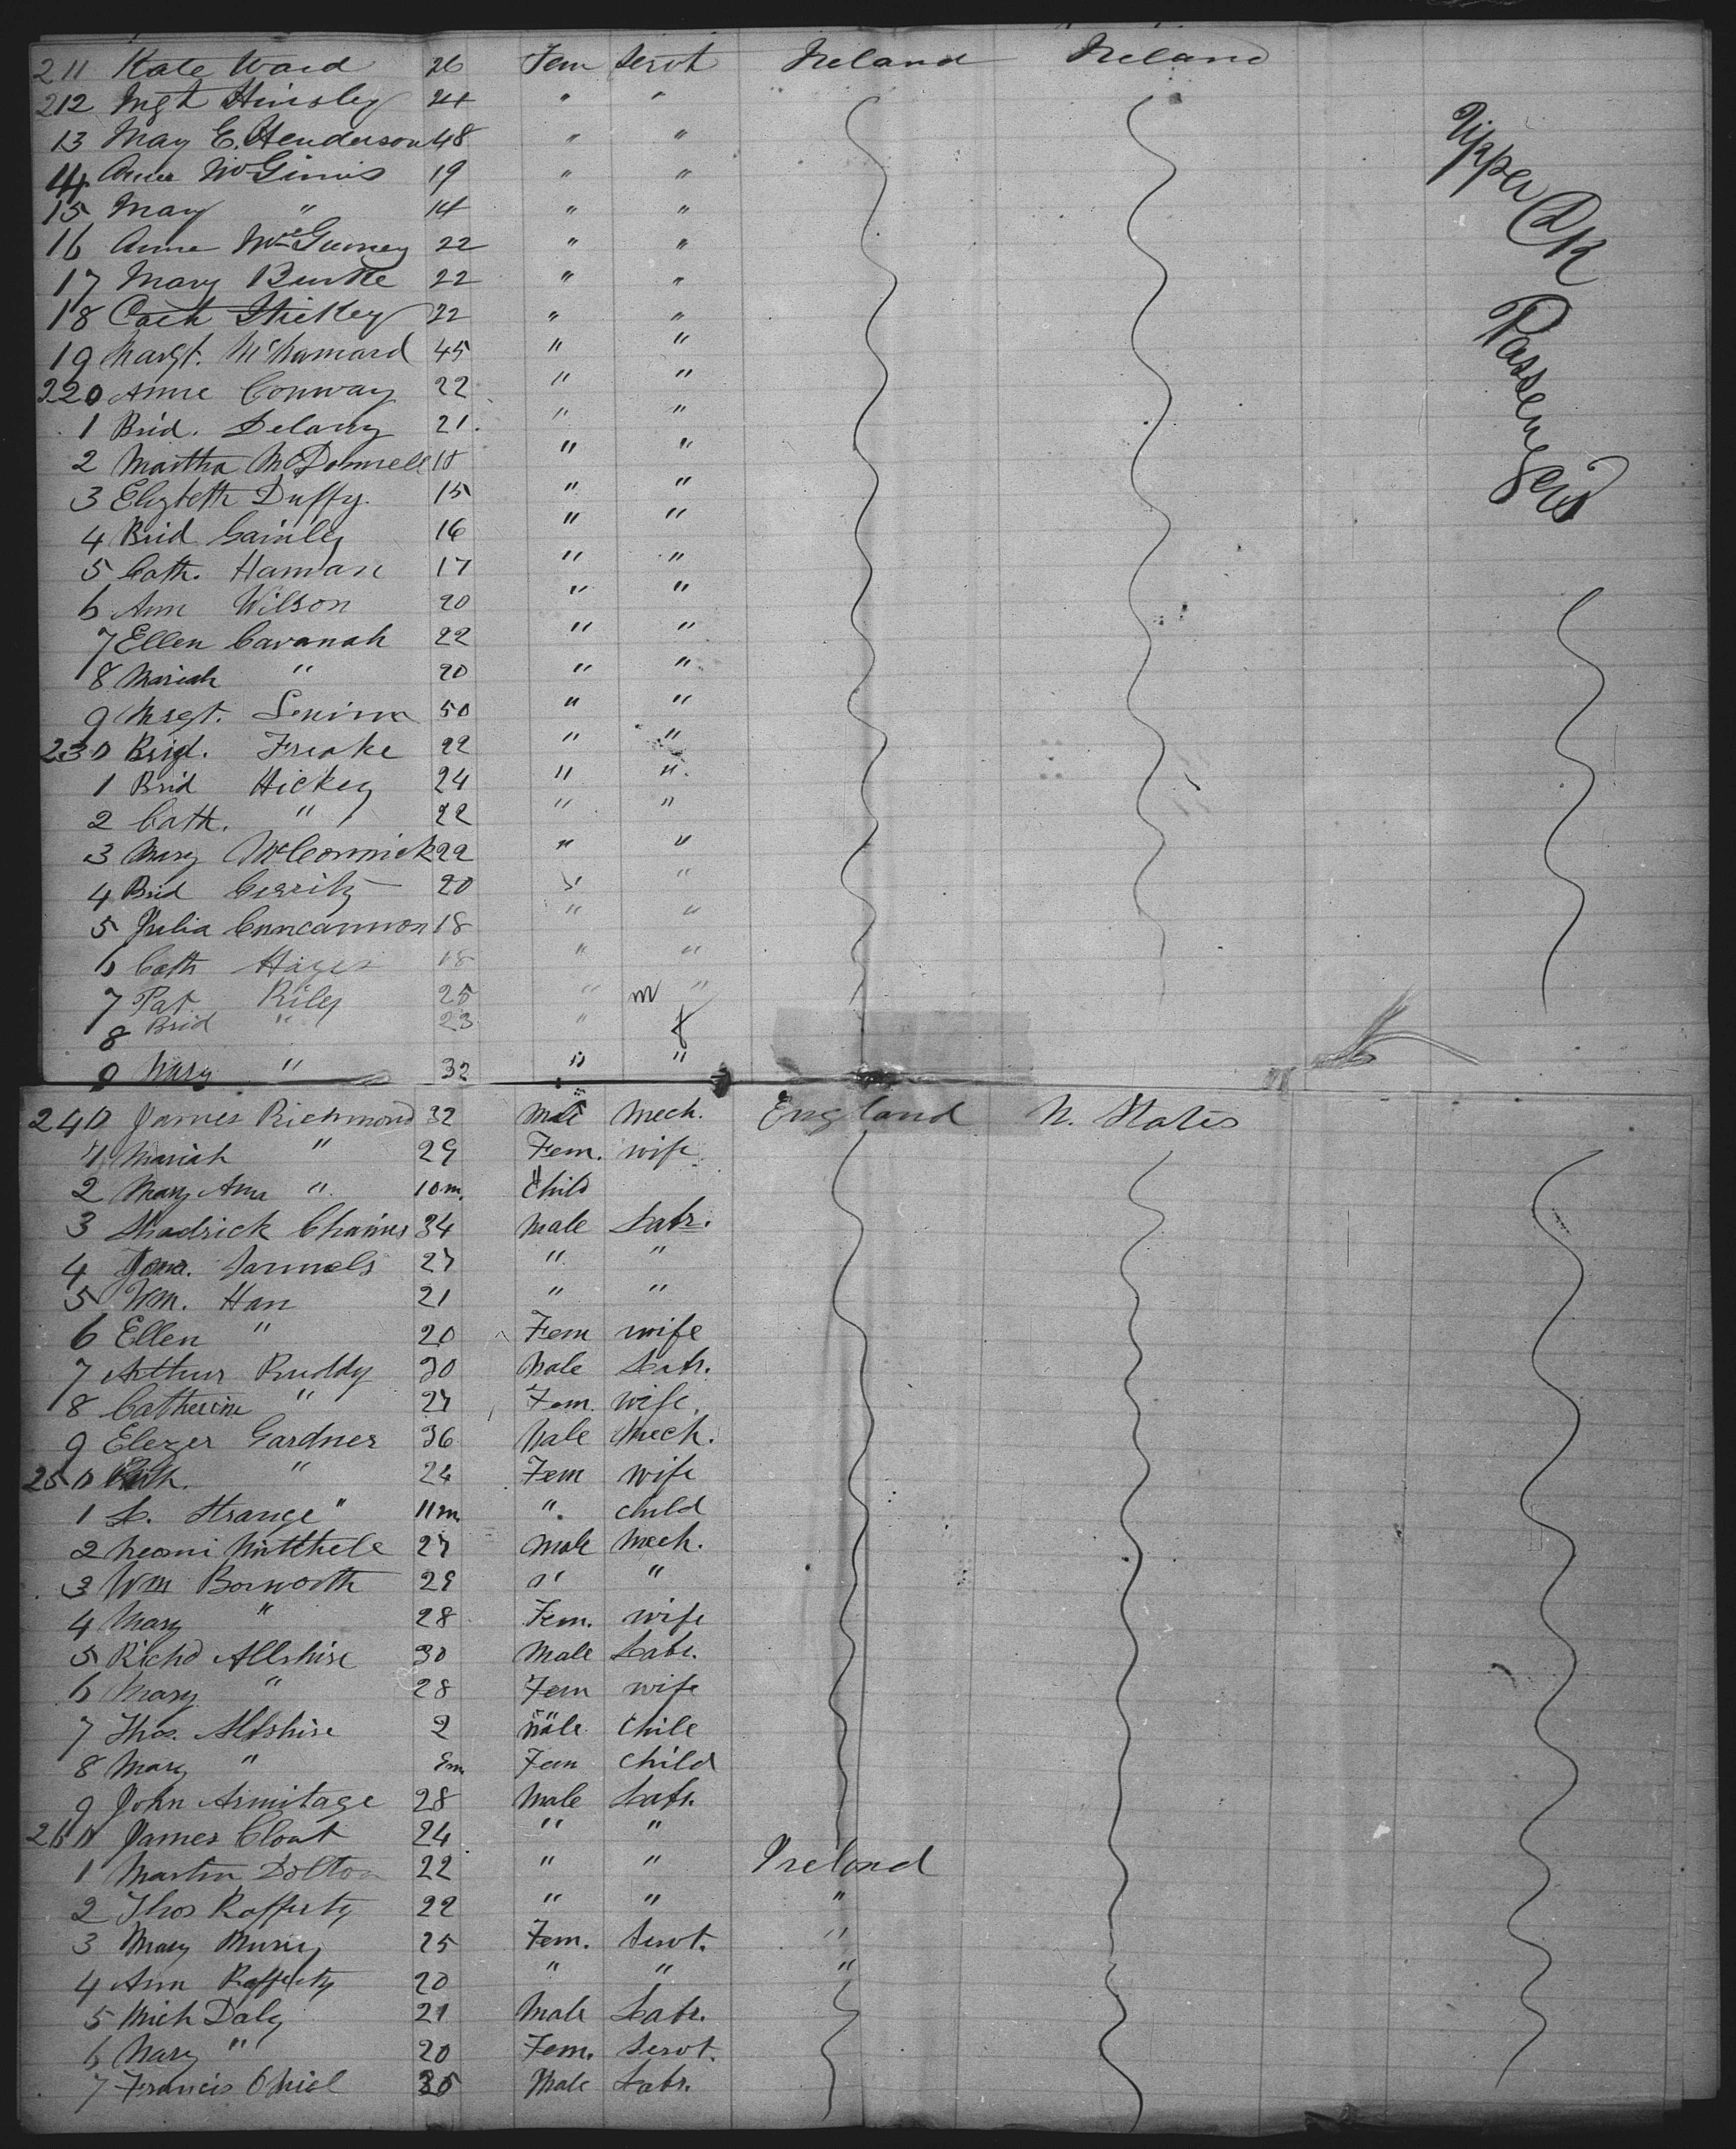 211 Kate Ward 26 Fem Servt Ireland Ireland
212 Mgt Hinsley 24 " "
13 May E. Henderson 48 " "
14 Anne McGinnis 19 " "
15 Mary " 14 " "
16 Anne 22 " "
17 Mary Burke 22 " "
18 Cath Hickey 22 " "
19 Margt. McNamard 45 " "
220 Anne Conway 22 " "
1 Brid. Delany 21. " "
2 Martha McDonnell 18 " "
3 Elizbeth Duffy. 15 " "
4 Brid 16 " "
5 Cath. Hannan 17 " "
6 Ann Wilson 20 " "
7 Ellen Cavanah 22 " "
8 Mariah " 20 " "
9 Mrgt. 50 " "
230 Brigt. Freake 22 " "
1 Brid Hickey 24 " "
2 Cath. " 22 " "
3 Mary McCormick 22 " "
4 Brid Gerrity 20 " "
5 Julia Cuncannon 18 " "
6 Cath Hayes 18 " "
7 Pat Riley 25 " m "
8 Brid " 23 " f
9 Mary " 32 " "
Upper Dk Passengers
240 James Richmond 32 Male Mech. England U. States
1 Mariah " 29 Fem. wife
2 Mary Ann " 10m. Child
3 Shadrick Chaines 34 Male Labr.
4 Samuels 27 " "
5 Wm. Han 21 " "
6 Ellen " 20 Fem wife
7 Arthur Ruddy 30 Male Labr.
8 Catherine " 27 Fem. wife.
9 Elezer Gardner 36 Male Mech.
250 Ruth. " 24 Fem wife
1 L. Strange " 11m ". child
2 27 Male Mech.
3 Wm Bosworth 29 " "
4 Mary " 28 Fem. wife
5 Richd Allshire 30 Male Labr.
6 Mary " 28 Fem wife
7 Thos. Allshire 2 Male Chile
8 Mary " Fem child
9 John Armitage 28 Male Labr.
260 James Cloat 24 " "
1 Martin Dolton 22 " " Ireland
2 Thos Rafferty 22 " " "
3 Mary 25 Fem. Servt. "
4 Ann Rafferty 20 " " "
5 Mich Daly 21 Male Labr.
6 Mary " 20 Fem. Servt.
7 Francis ONiel 35 Male Labr.